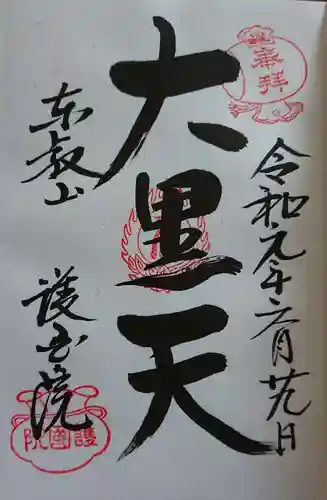 奉拝
令和元年六月廿九日
大黒天
東叡山
護国院
護國院